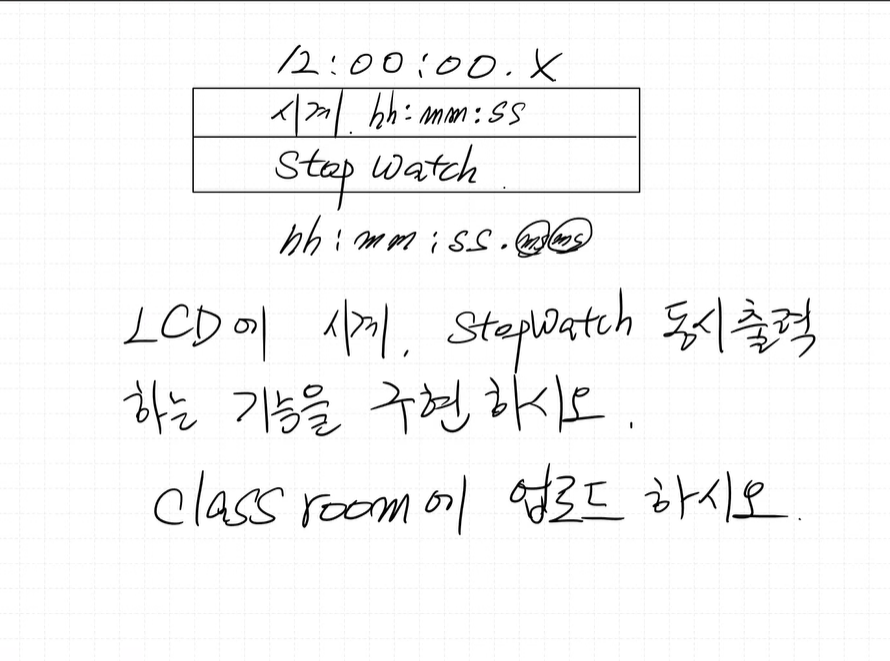 12:00:00.X
시계. hh:mm:ss
Stop Watch
hh:mm:ss.msms
LCD에 시계, StopWatch 동시출력
하는 기능을 구현하시오.
Classroom에 업로드 하시오.